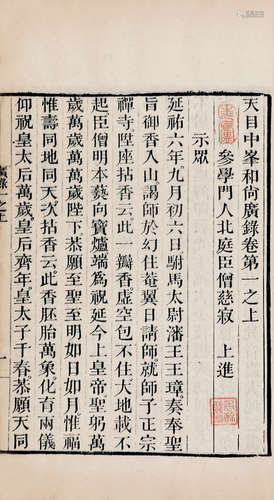 天目中峯和尚廣錄卷第一之上
參學門人北庭臣僧慈寂 上進
示眾
延祐六年九月初六日駙馬太尉瀋王王璋奏奉聖
旨御香入山謁師於幻住菴翼日請師就師子正宗
禪寺陞座拈香云此一瓣香虛空包不住大地載不
起臣僧明本爇向寶爐端為祝延今上皇帝聖躬萬
歲萬歲萬萬歲陛下恭願至聖至明如日如月惟福
惟壽同地同天次拈香云此香胚胎萬象化育兩儀
仰祝皇太后萬歲皇后齊年皇太子千春恭願天同
廣錄一之上
一